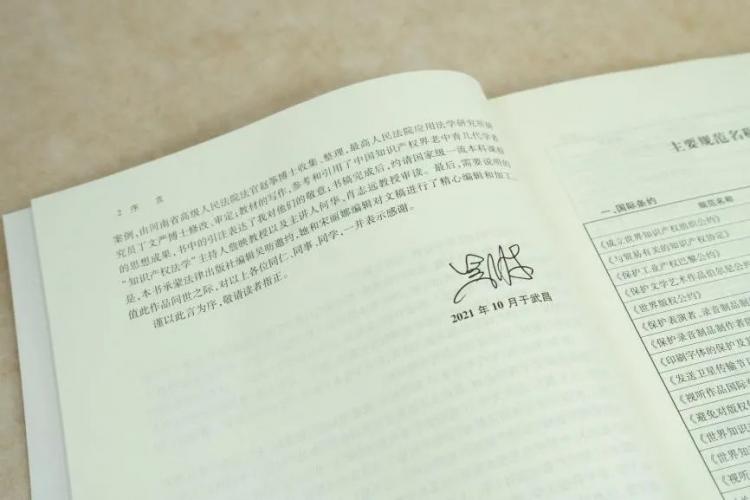 2 序 言
案例，由河南省高级人民法院法官赵筝博士收集、整理，最高人民法院应用法学研究所研
究员丁文严博士修改、审定；教材的写作，参考和引用了中国知识产权界老中青几代学者
的思想成果，书中的引注表达了我对他们的敬意；书稿完成后，约请国家级一流本科课程
“知识产权法学”主持人詹映教授以及主讲人何华、肖志远教授审读。最后，需要说明的
是，本书承蒙法律出版社编辑吴昉邀约，她和宋丽娜编辑对文稿进行了精心编辑和加工。
值此作品问世之际，对以上各位同仁、同事、同学，一并表示感谢。
谨以此言为序，敬请读者指正。
2021 年 10 月于武昌
主要规范名称
一、国际条约
规范名称
《成立世界知识产权组织公约》
《与贸易有关的知识产权协定》
《保护工业产权巴黎公约》
《保护文学艺术作品伯尔尼公约
《世界版权公约》
《保护表演者、录音制品制
《保护录音制品制作者
《印刷字体的保护及其
《发送卫星传输节目
《视听作品国际
《避免对版权
《世界知识
《世界知识
《视听